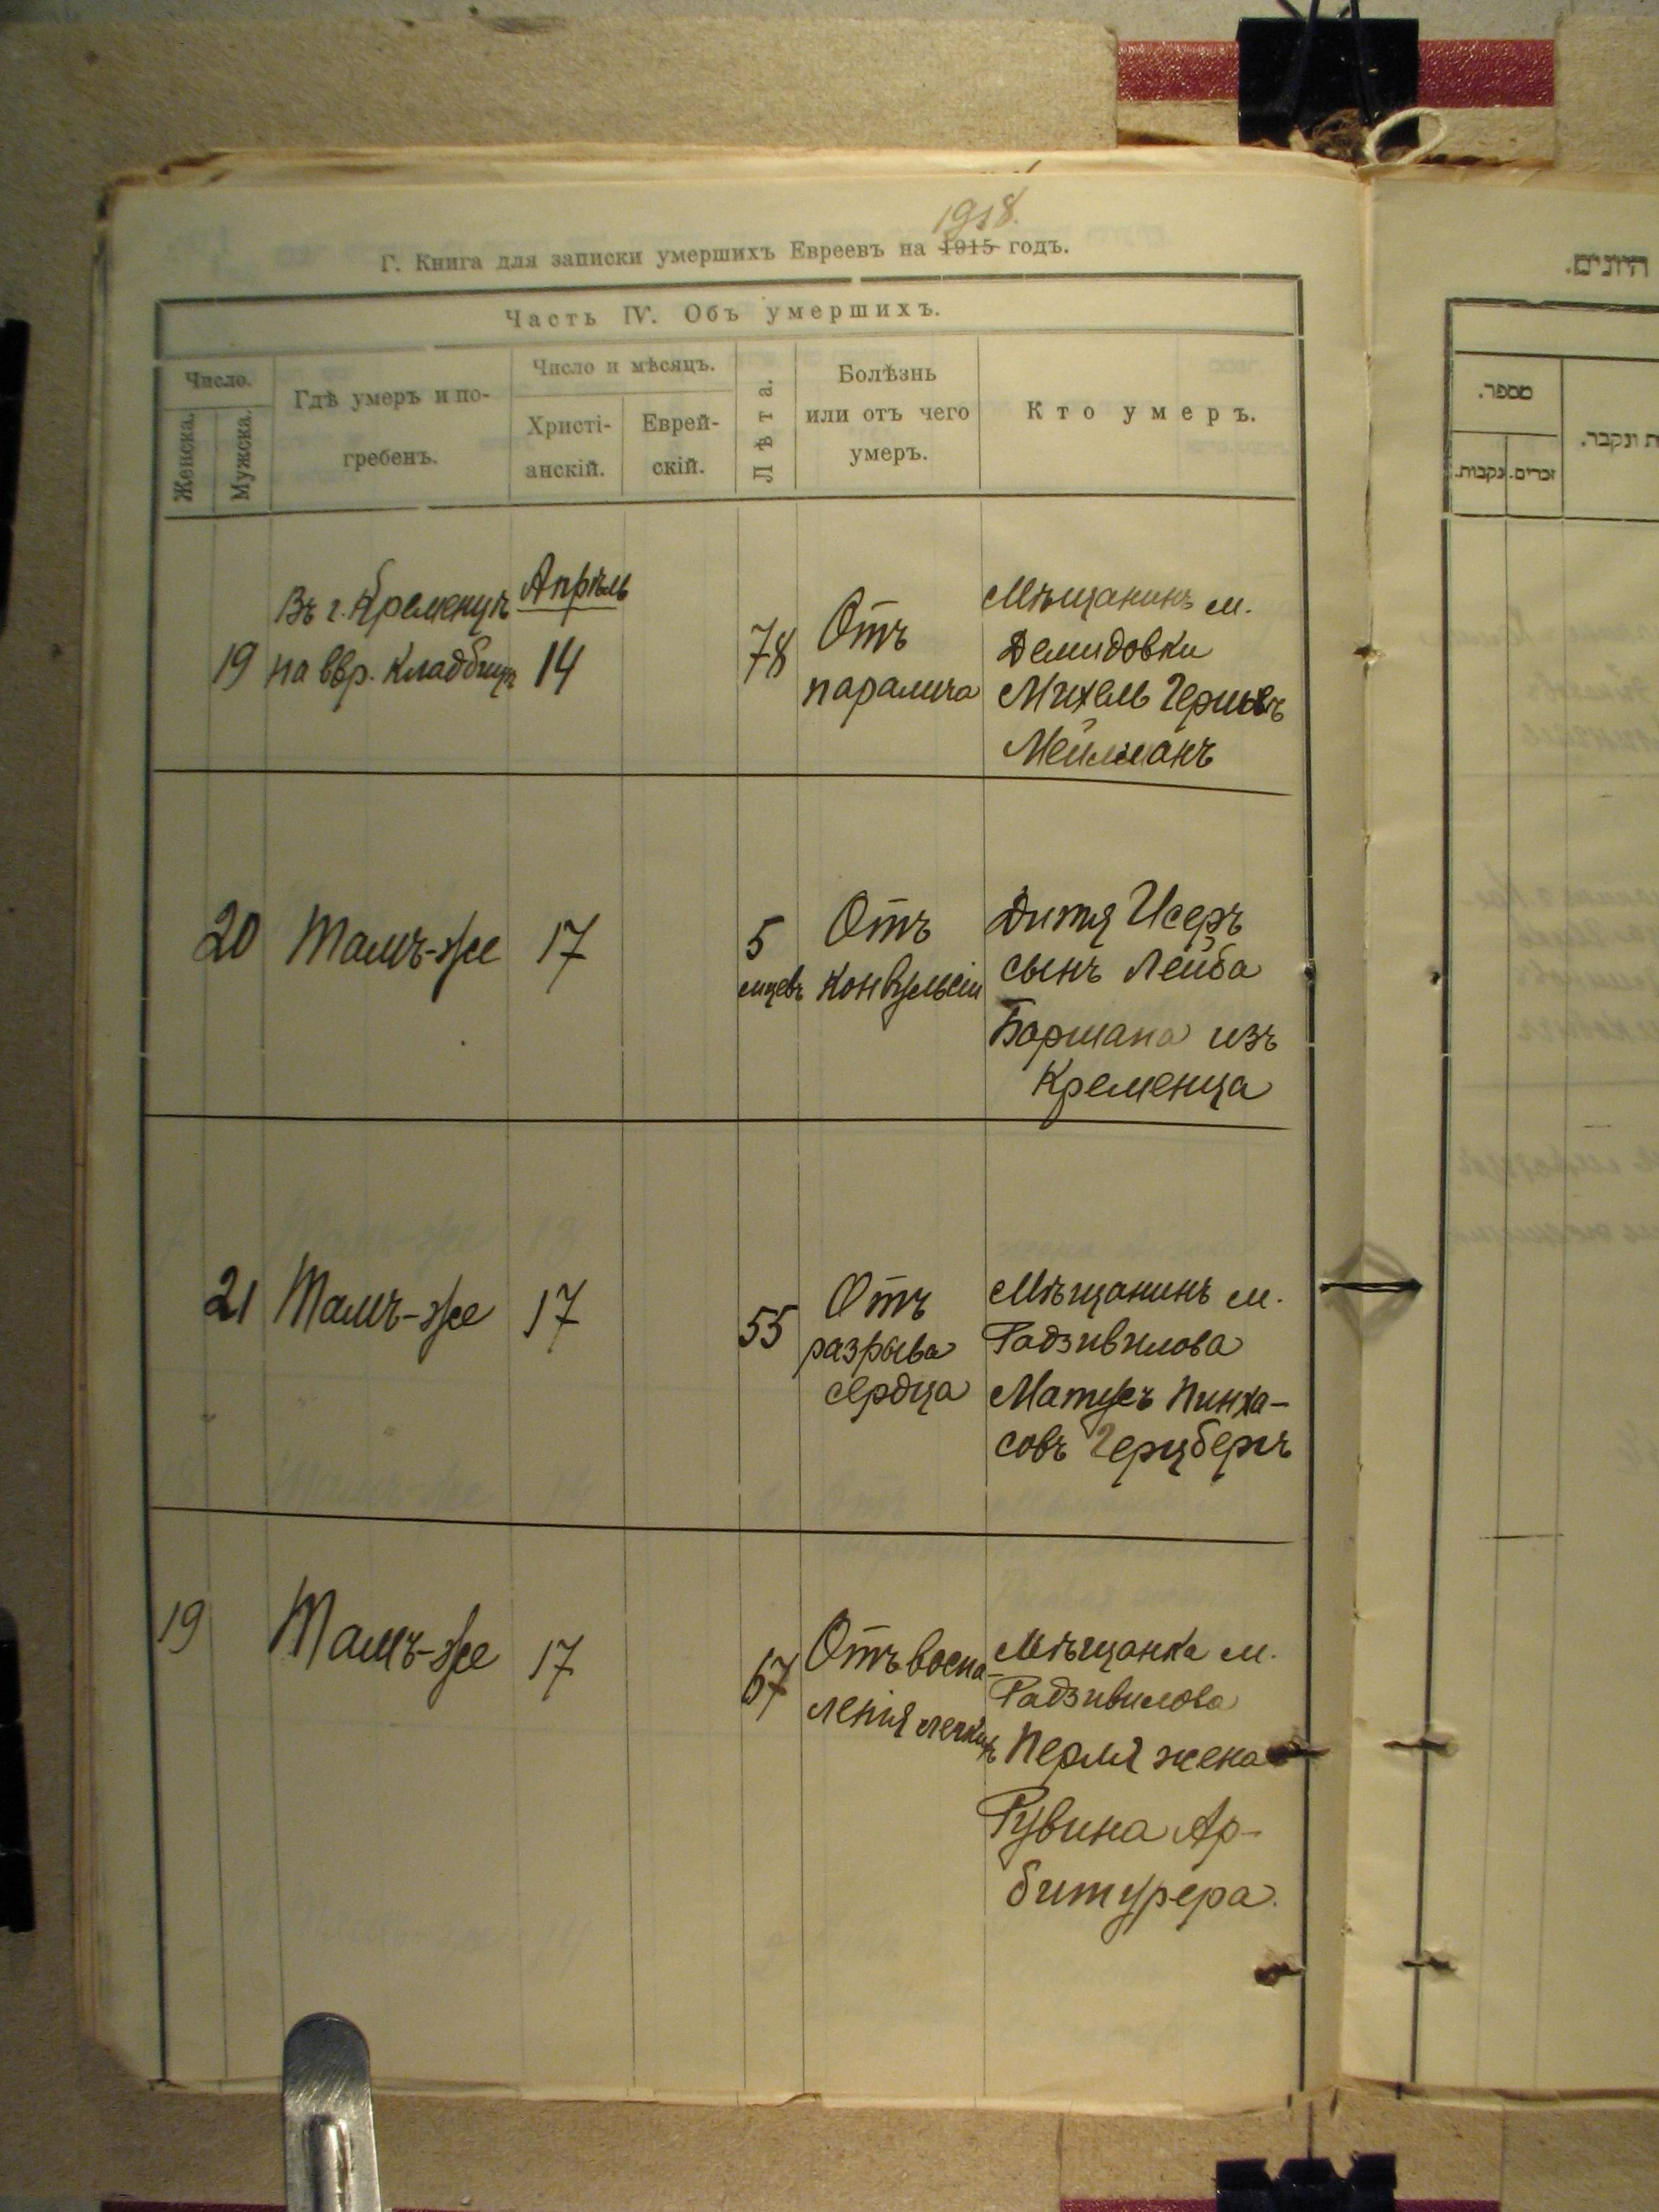 1918.
Г. Книга для записки умершихъ Евреевъ на 1915 годъ.
Часть IV. Объ умершихъ.
Число.
Женска.
Мужска.
Гдѣ умеръ и по-
гребенъ.
Число и мѣсяцъ.
Христі-
анскій.
Еврей-
скій.
Лѣта.
Болѣзнь
или отъ чего
умеръ.
Кто умеръ.
19
Въ г. Кременцѣ
на евр. кладбищѣ
Апрѣль
14
78
Отъ
паралича
Мѣщанинъ м.
Демидовки
Михель
Мейлманъ
20
Тамъ-же
17
5
мцевъ
Отъ
конвульсіи
Дитя Исеръ
сынъ Лейба
Бормана изъ
Кременца
21
Тамъ-же
17
55
Отъ
разрыва
сердца
Мѣщанинъ м.
Радзивилова
Матусъ Пинха-
совъ Герцбергъ
19
Тамъ-же
17
67
Отъ воспа-
ленія легкихъ
Мѣщанка м.
Радзивилова
Перля жена
Рувина Ар-
битурера.
היונים.
מספר.
זכרים.
נקבות.
ונקבר.